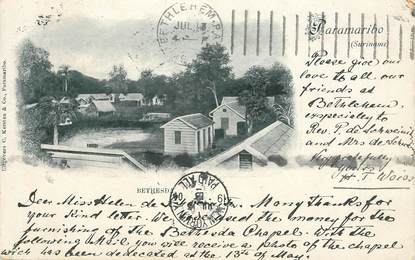 BETHLEHEM, PA.
JUL 13
Paramaribo
(Suriname)
Please give our
love to all our
friends at
Bethlehem,
especially to
Rev. P. de Schweinitz
and Mrs de Schw.
Yours
H. T. Weiss
Uitgevers C. Kersten & Co., Paramaribo.
BETHESDA
NEW YORK, N.Y.
PAID ALL
Dear Miss Helen de Many thanks for
your kind letter. We received the money for the
furnishing of the Bethesda Chapel. With the
following Mail you will receive a photo of the chapel
wich has been dedicated at the 13th of May.